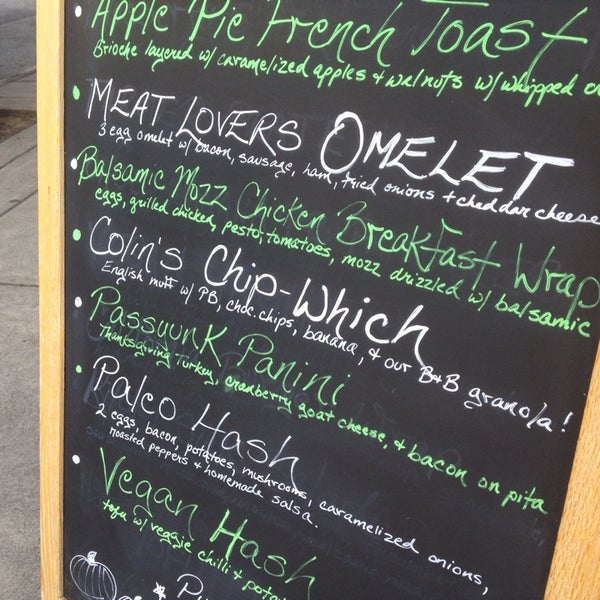 Apple Pie French Toast
Brioche layered w/ caramelized apples & walnuts w/ whipped
MEAT LOVERS OMELET
3 egg omelet w/ bacon, sausage, ham, fried onions + cheddar cheese
Balsamic Mozz Chicken Breakfast Wrap
eggs, grilled chicken, pesto, tomatoes, mozz drizzled w/ balsamic
Colin's Chip-Which
English muff w/ PB, choc. chips, banana, & our B&B granola!
Passyunk Panini
Thanksgiving Turkey, cranberry goat cheese, & bacon on pita
Paleo Hash
2 eggs, bacon, potatoes, mushrooms, caramelized onions,
roasted peppers & homemade salsa.
Vegan Hash
tofu w/ veggie chilli &